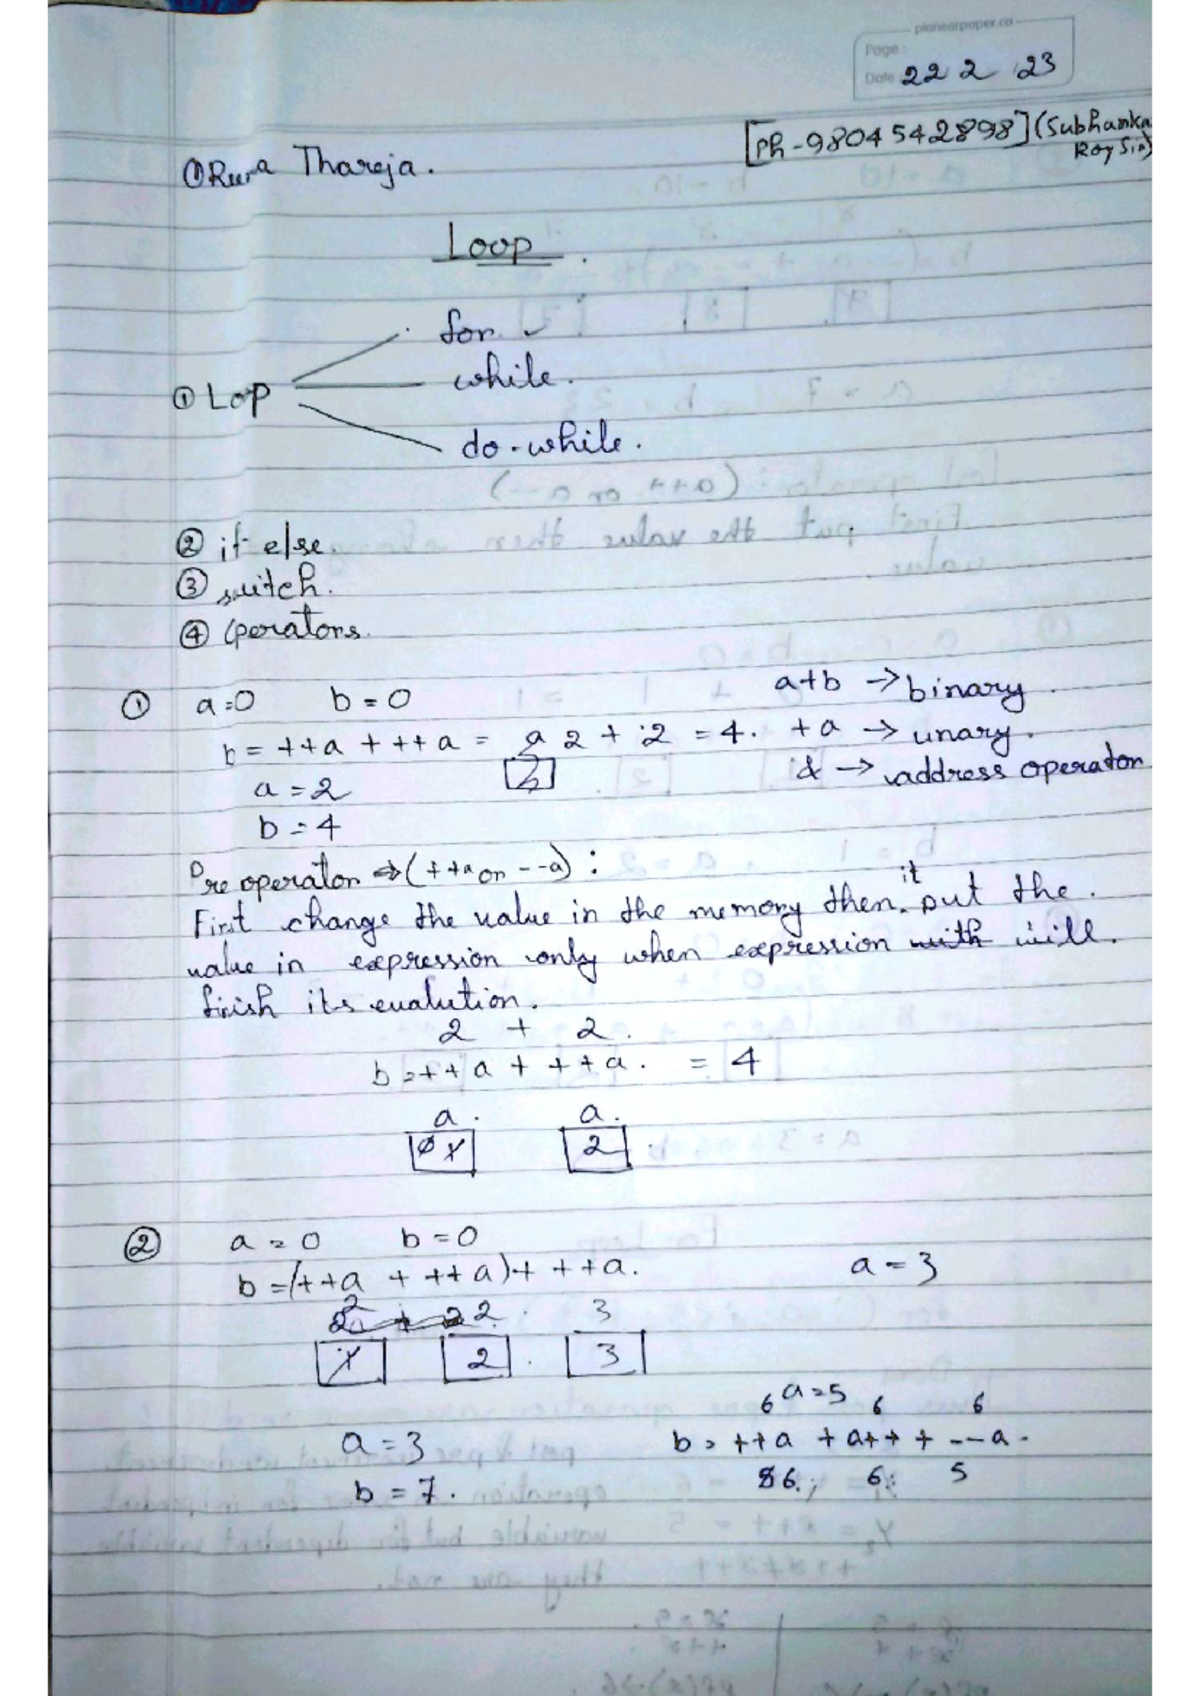 pioneerpaper.co
Page :
Date 22 2 23
[Ph-9804542898] (Subhanka
Roy Sir)
① Thareja.
Loop
for
① Lop while.
do-while.
② if else
③ switch.
④ Operators.
① a=0 b=0 a+b → binary
b = ++a + ++a = 2 + 2 = 4. +a → unary.
a = 2 & → address operator
b = 4
Pre operator ⇒ (++a or --a) :
First change the value in the memory then it put the.
value in expression only when expression will.
finish its evalution.
2 + 2.
b = ++a + ++a. = 4
a. a.
0 1 2
② a = 0 b = 0
b = (++a + ++a) + ++a. a = 3
2 2 3
1 2 3
6 a=5 6 6
a = 3 b = ++a + a++ + --a.
b = 7. 6 6 5